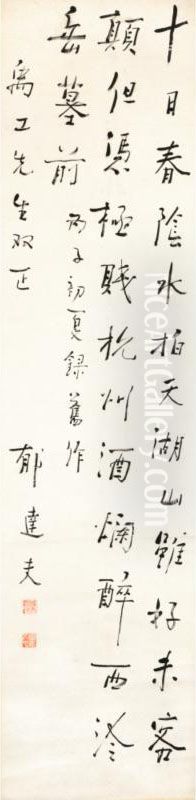 十日春陰水拍天湖山雖好未容
顛但憑極賤杭州酒爛醉西泠
岳墓前 丙子初夏錄舊作
禹工先生双正 郁達夫
NiceArtGallery.com